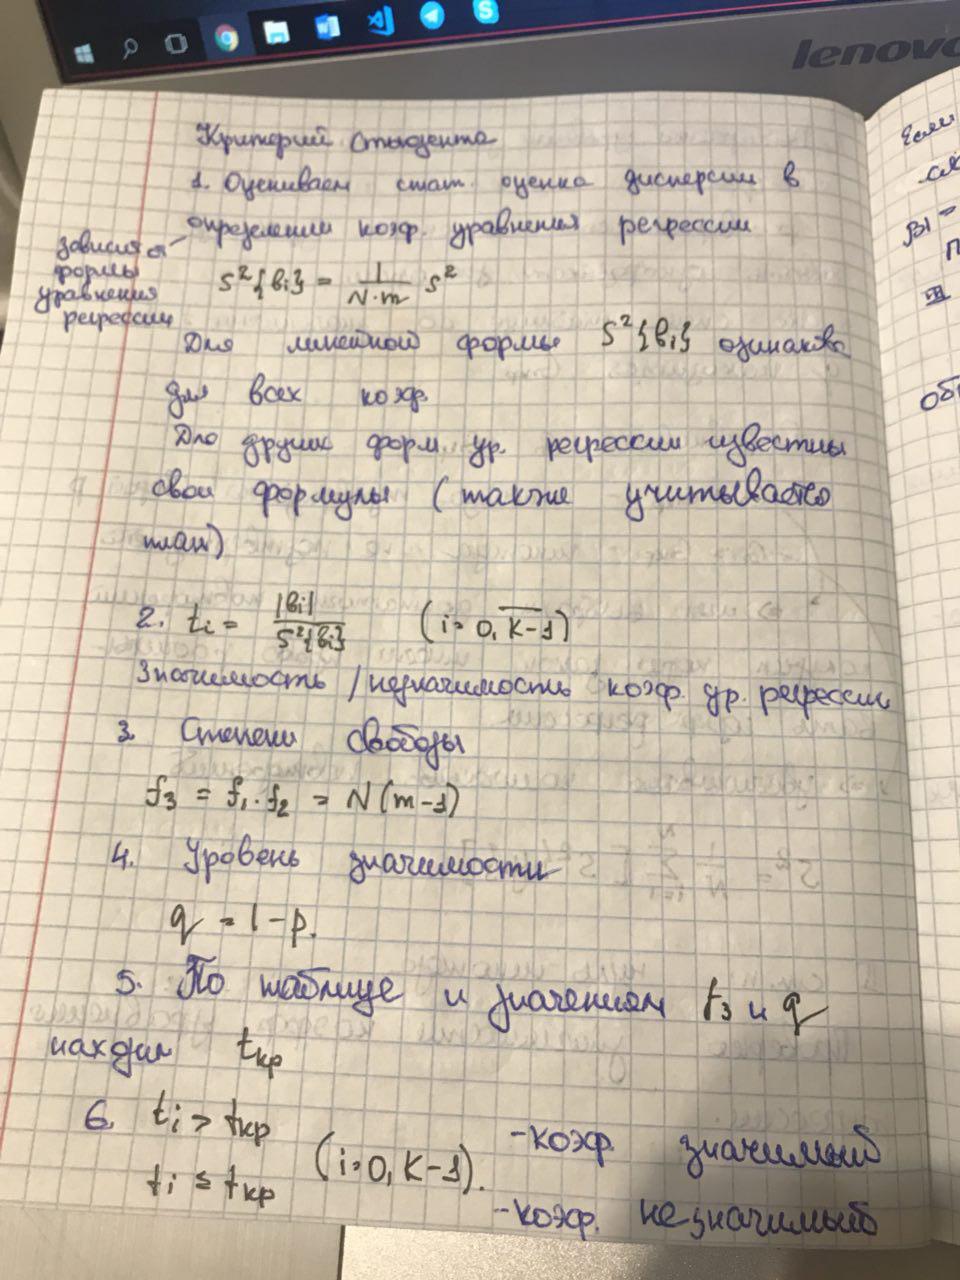 lenovo
Критерий Стьюдента
1. Оцениваем стат. оценка дисперсии в
определении коэф. уравнения регрессии
зависит от
формы
уравнения
регрессии
S²{bi} = 1/(N·m) S²
Для линейной формы S²{bi} одинакова
для всех коэф.
Для других форм ур. регрессии известны
свои формулы (также учитывается
план)
2. ti = |bi| / S²{bi} (i = 0, K-1)
Значимость / незначимость коэф. ур. регрессии
3. Степени свободы
f3 = f1 · f2 = N(m-1)
4. Уровень значимости
q = 1 - p.
5. По таблице и значениям f3 и q
находим tкр
6. ti > tкр (i = 0, K-1). - коэф. значимый
ti ≤ tкр - коэф. незначимый
Если